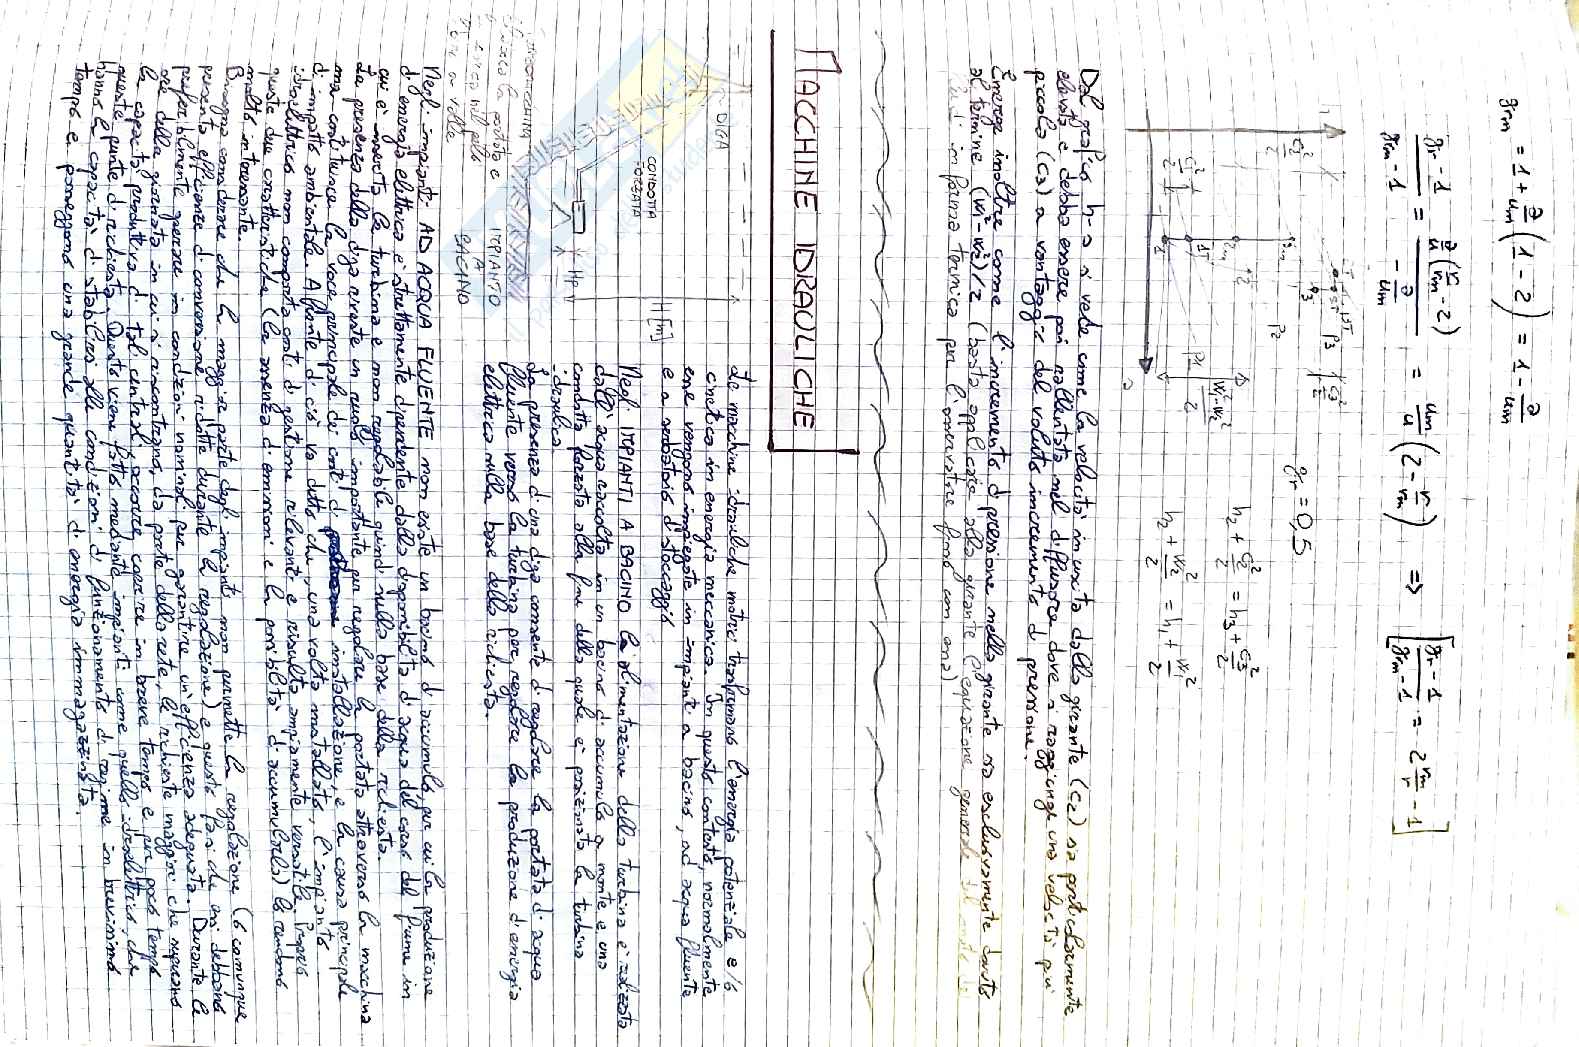 gr_m = 1 + a/u_m (1 - 2) = 1 - a/u_m
(gr - 1)/(gr_m - 1) = (a/u (r/r_m - 2))/(- a/u_m) = u_m/u (2 - r/r_m) ⇒ [(gr - 1)/(gr_m - 1) = 2 r_m/r - 1]
gr = 0,5
h₂ + c₂²/2 = h₃ + c₃²/2
h₂ + w₂²/2 = h₁ + w₁²/2
Dal grafico h-s si vede come la velocità in uscita dalla girante (c₂) sia particolarmente
elevata e debba essere poi rallentata nel diffusore dove si raggiunge una velocità più
piccola (c₃) a vantaggio del voluto incremento di pressione.
Emerge inoltre come l'incremento di pressione nella girante sia esclusivamente dovuto
al termine (w₁²-w₂²)/2 (basta applicare alla girante l'equazione generale del moto
in forma termica per l'osservatore fisso con essa)
MACCHINE IDRAULICHE
Le macchine idrauliche motrici trasformano l'energia potenziale e/o
cinetica in energia meccanica. In questo contesto, normalmente
esse vengono impiegate in impianti a bacino, ad acqua fluente
e a serbatoio di stoccaggio
DIGA
CONDOTTA
FORZATA
H [m]
Negli IMPIANTI A BACINO la alimentazione della turbina è realizzata
dall'acqua raccolta in un bacino di accumulo a monte e una
condotta forzata alla fine della quale è posizionata la turbina
idraulica.
La presenza di una diga consente di regolare la portata di acqua
fluente verso la turbina per regolare la produzione di energia
elettrica sulla base della richiesta.
IMPIANTO
A
BACINO
Negli impianti AD ACQUA FLUENTE non esiste un bacino d'accumulo, per cui la produzione
di energia elettrica è strettamente dipendente dalla disponibilità d'acqua del corso del fiume in
cui è inserita la turbina e non regolabile quindi sulla base della richiesta.
La presenza della diga riveste un ruolo importante per regolare la portata attraverso la macchina
ma costituisce la voce principale dei costi di installazione, e la causa principale
di impatto ambientale. A fronte di ciò va detto che, una volta installato, l'impianto
idroelettrico non comporta costi di gestione rilevanti e risulta ampiamente versatile. Proprio
queste due caratteristiche (la assenza di emissioni e la possibilità di accumularla) la rendono
molto interessante.
Bisogna considerare che la maggior parte degli impianti non permette la regolazione (o comunque
presenta efficienze di conversione ridotte durante la regolazione) e questo fa sì che essi debbano
preferibilmente operare in condizioni nominali per garantire un'efficienza adeguata. Durante le
ore della giornata in cui si riscontrano, da parte della rete, le richieste maggiori che superano
la capacità produttiva di tali centrali, occorre coprire in breve tempo e per poco tempo
queste punte di richiesta. Questo viene fatto mediante impianti come quelli idroelettrici, che
hanno la capacità di stabilirsi alle condizioni di funzionamento di regime in brevissimo
tempo e posseggono una grande quantità di energia immagazzinata.